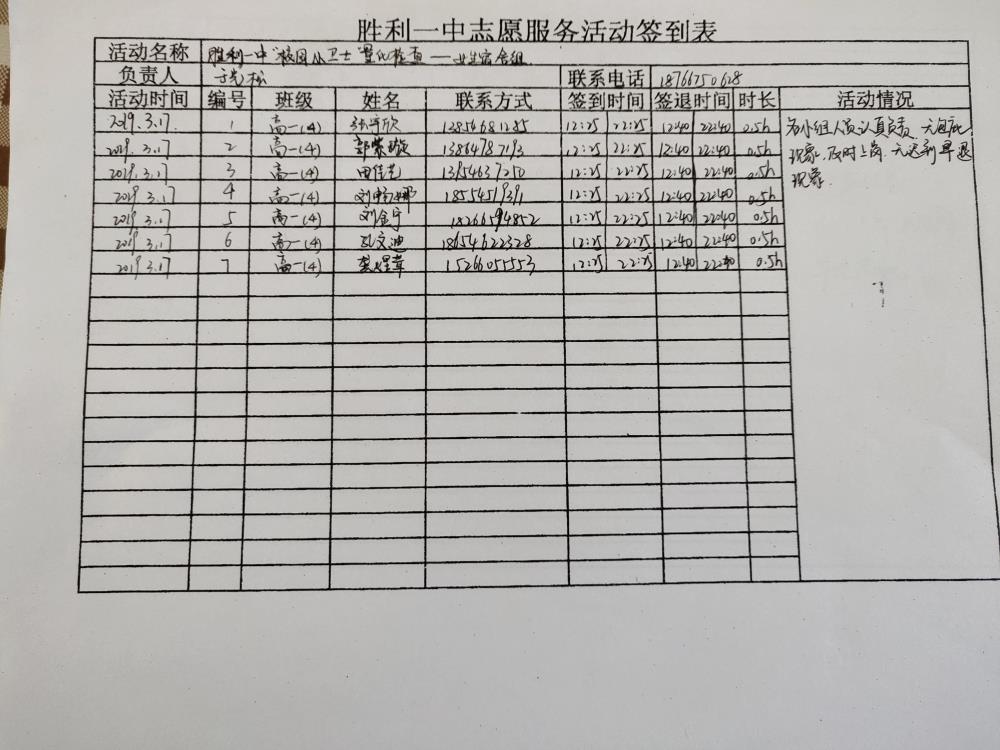 胜利一中志愿服务活动签到表
活动名称 胜利一中"校园小卫士"量化检查——女生宿舍组
负责人 联系电话 18766750628
活动时间 编号 班级 姓名 联系方式 签到时间 签退时间 时长 活动情况
2019.3.17 1 高一(4) 12:25 22:25 12:40 22:40 0.5h 各小组人员认真负责,无包庇
2019.3.17 2 高一(4) 13864787193 12:25 22:25 12:40 22:40 0.5h 现象.及时上岗.无迟到早退
2019.3.17 3 高一(4) 田佳艺 13954637250 12:25 22:25 12:40 22:40 0.5h 现象.
2019.3.17 4 高一(4) 18554519391 12:25 22:25 12:40 22:40 0.5h
2019.3.17 5 高一(4) 刘金宁 18266594852 12:25 22:25 12:40 22:40 0.5h
2019.3.17 6 高一(4) 孔文迪 18654622328 12:25 22:25 12:40 22:40 0.5h
2019.3.17 7 高一(4) 12:25 22:25 12:40 22:40 0.5h